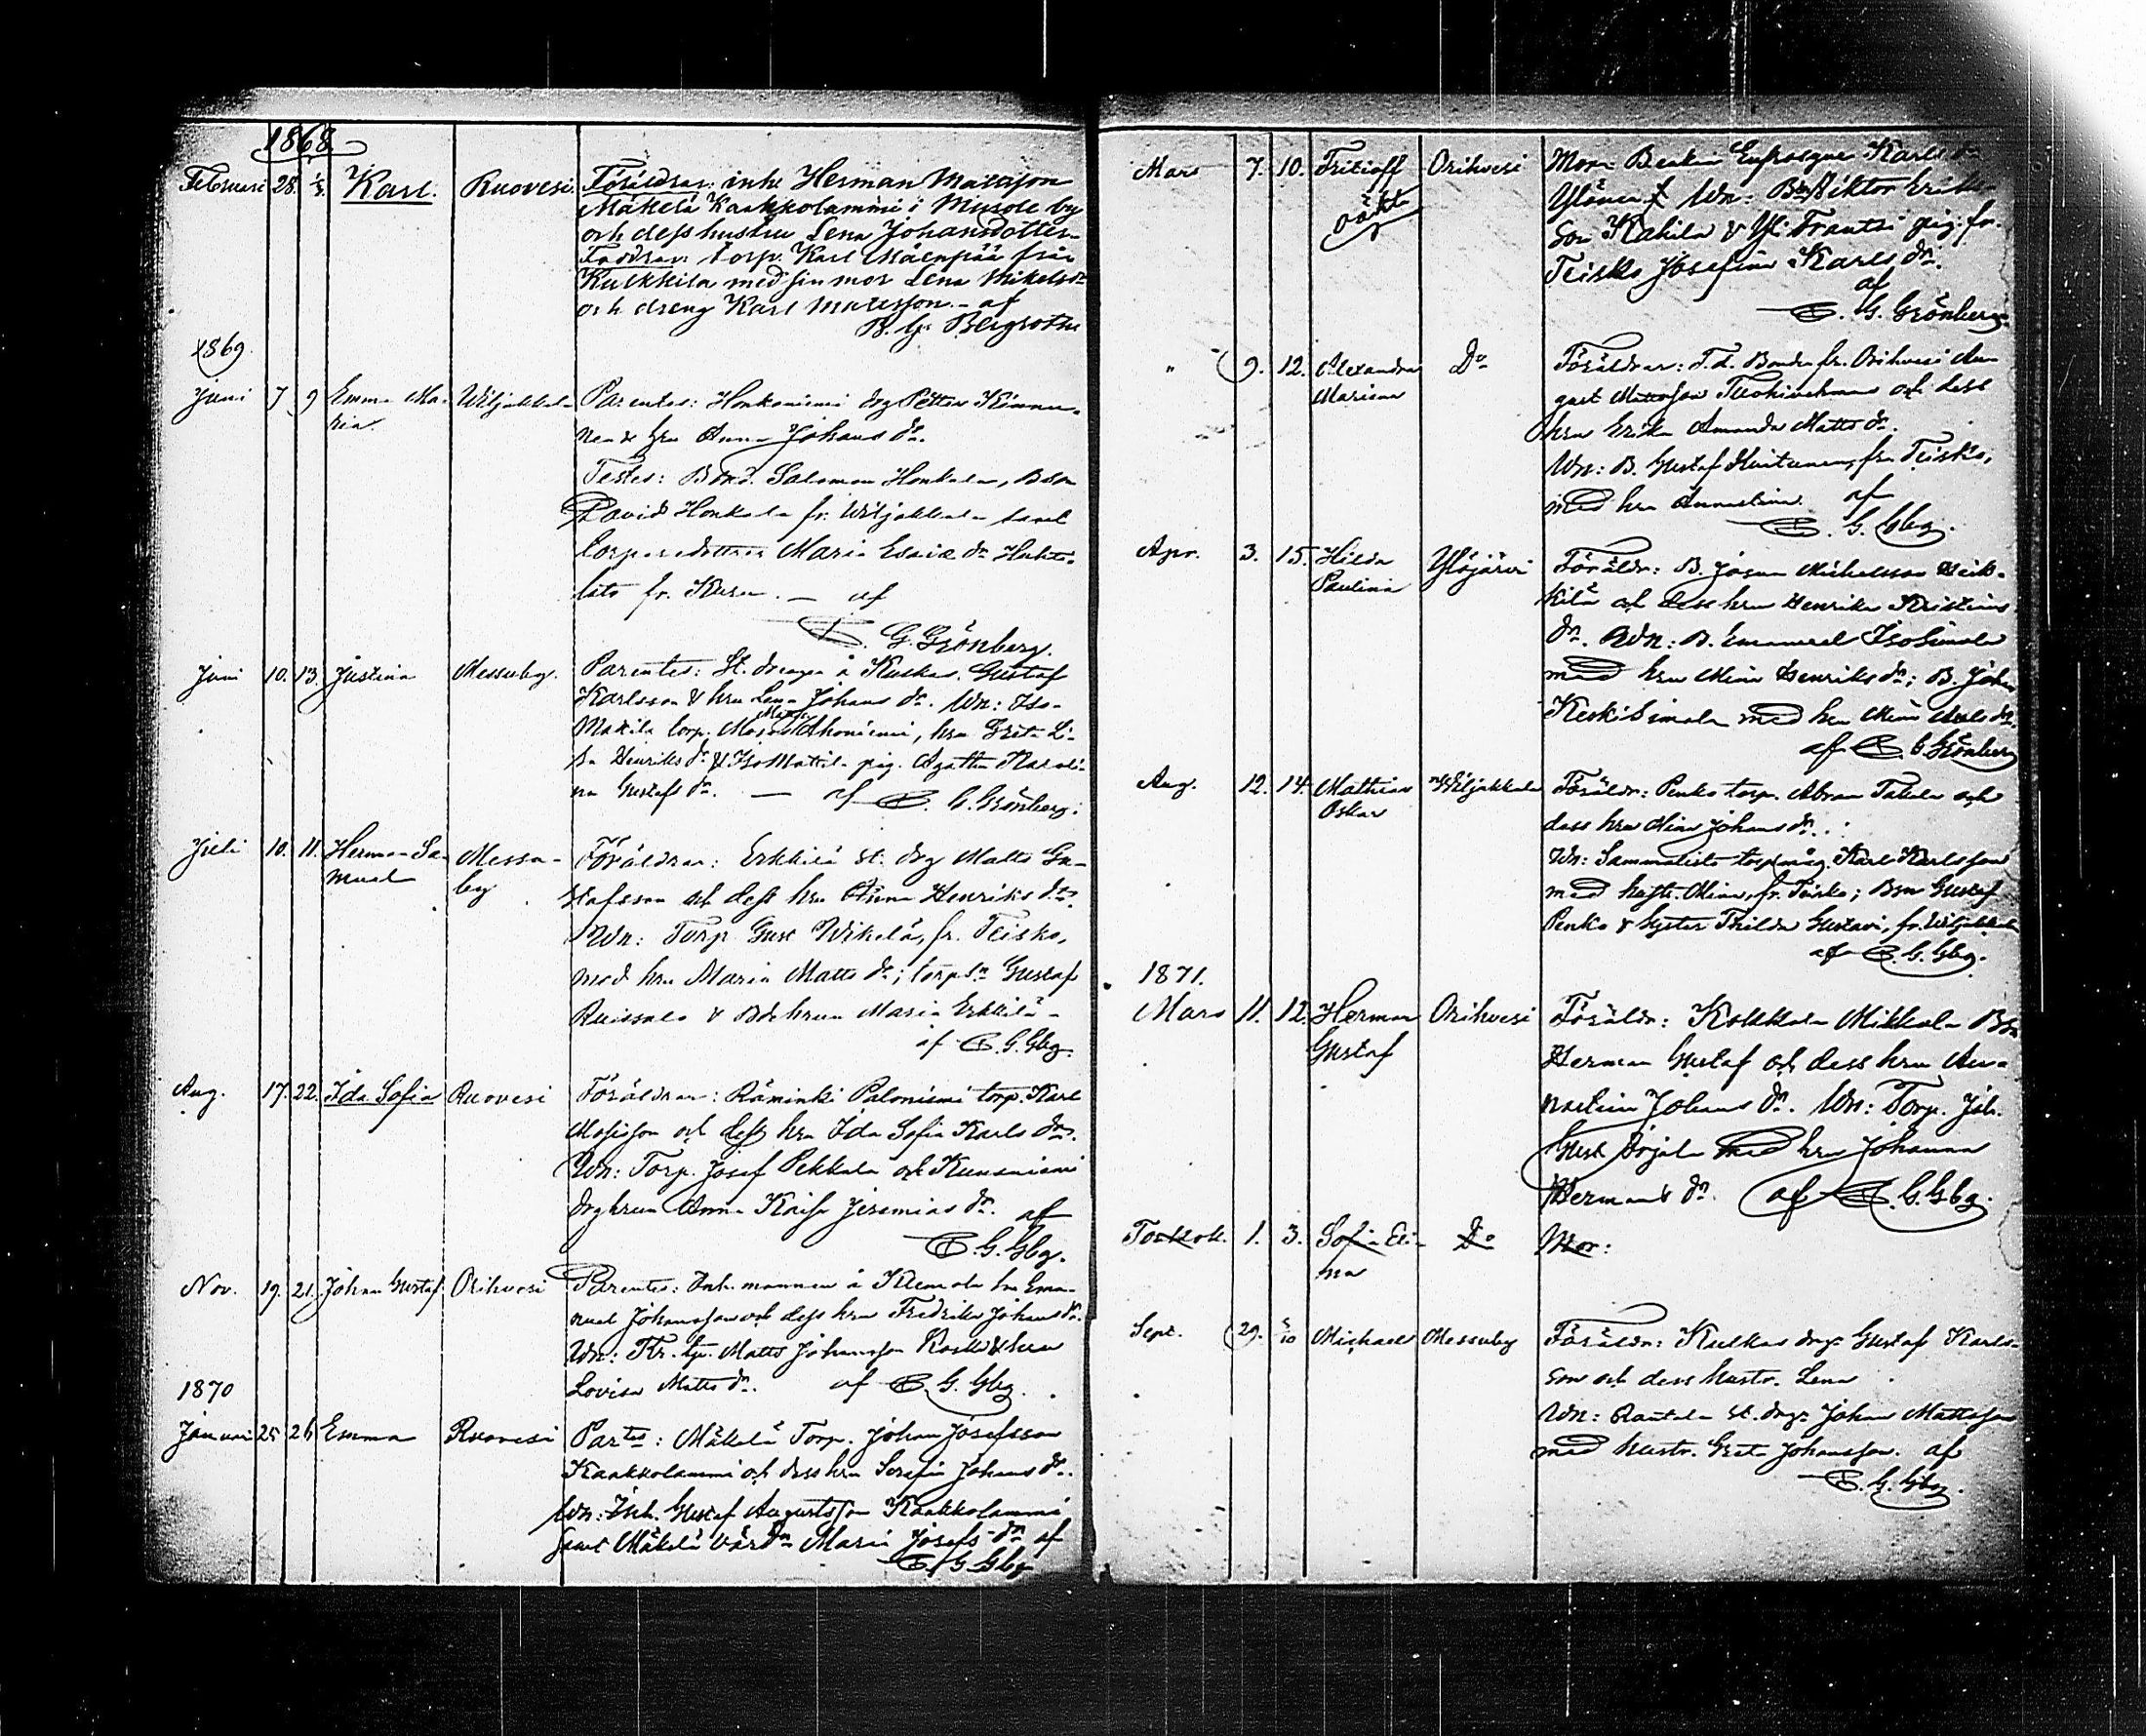 1868
Februari 28. 1/3. Karl. Ruovesi. Föräldrar: inh. Herman Mattsson
Mäkelä Kaakkolammi i Musole by
och dess hustru Lena Johansdotter.
Faddrar: torp. Karl Mäenpää från
Kulkkila med sin mor Lena Mikelsdr
och dreng Karl Matsson. – af
B. G. Bergroth
1869.
Juni 7 9 Emma Ma- Wiljakkala Parentes: Honkaniemi drg Petter Kinnu-
ria. nen & hru Anna Johans dr.
Testes: Bond. Salomon Honkala, Bson
David Honkala fr. Wiljakkala samt
torparedottren Maria Esaiæ dr
fr. Kuru. – af
G. Grönberg.
Juni 10. 13. Justina Messuby. Parentes: St. drengen å Kuskas Gustaf
Karlsson & hru Lena Johans dr. Wn: Iso-
Mattila torp. Ahoniemi, hru Greta Li-
sa Henriks dr & IsoMattila pig. Agatha Karoli-
na Gustafs dr. – af G. Grönberg.
Juli 10. 11. Herman Sa- Messu- Föräldrar: Erkkilä st. drg Matts Gu-
muel by stafsson och dess hru Anna Henriks dr.
Wn: Torp. Gust Wikelä, fr. Teisko,
med hru Maria Matts dr; torp.sn Gustaf
Ruissalo & Bdehrun Maria Erkkilä –
af G. Gbg.
Aug. 17. 22. Ida Sofia Ruovesi Föräldrar: Räminki Paloniemi torp. Karl
och dess hru Ida Sofia Karls dr.
Wn: Torp. Josef Pekkala och Kuusniemi
drghrun Anna Kaisa Jeremias dr. af
G. Gbg.
Nov. 19. 21. Johan Gustaf Orihvesi Parentes: Inh. mannen å Klemola Ema-
nuel Johansson och dess hru Fredrika Johans dr.
Wn: Matts Johansson & hru
Lovisa Matts dr. af G. Gbg.
1870
Januari 25 26 Emma Ruovesi Partes: Mäkelä Torp. Johan Josefsson
Kaakkolammi och dess hru Serafia Johans dr.
Wn: Inh. Gustaf Augustsson Kaakkolammi
samt Mäkelä värdn Maria Josefs dr af
G. Gbg
Mars 7. 10. Fritioff Orihvesi Mor: Karls dr
oäkta Ylönen Wn: Bsn Viktor Eriks-
son Kakila & Yli Frantsi pig. fr.
Teisko Josefina Karls dr.
af
G. Grönberg.
" 9. 12. Alexandra Do Föräldrar: F.d. Bonden fr. Orihvesi Au-
Mariana gust Mattsson och dess
hru Erika Amanda Matts dr.
Wn: B. Gustaf fr. Teisko,
med hru Annastina. af
G. Gbg.
Apr. 3. 15. Hilda Ylöjärvi Föräldr: B. Josua Michelsson Heik-
Paulina kilä och dess hru Henrika Kristians
dr. Wn: B. Emanuel IsoSimola
med hru Mina Henriks dr; B. Joh.
KeskiSimola med hru Mina dr.
af G. Grönberg
Aug. 12. 14. Mathias Wiljakkala Föräldr: Penko torp. Abram Takala och
Oskar dess hru Mina Johans dr.
Wn: Sammalisto torp.måg Karl Karlsson
med Mina, fr. Teisko; Bsn Gustaf
Penko & syster Thilda Gustava, fr. Wiljakkala
af G. Gbg.
1871.
Mars 11. 12. Herman Orihvesi Föräldr: Kokkola Mikkola Bsn
Gustaf Herman Gustaf och dess hru An-
nastina Johans dr. Wn: Torp. Joh.
Gust med hru Johanna
Hermans dr. af G. Gbg.
1. 3. Sofia Eli- Do Mor:
na
Sept. 29. 5/10 Michael Messuby Föräldr: Kulkas drg Gustaf Karls-
son och dess hustr. Lena
Wn: Rantala st. drg Johan Mattsson
med hustr. Greta Johansson. af
G. Gbg.